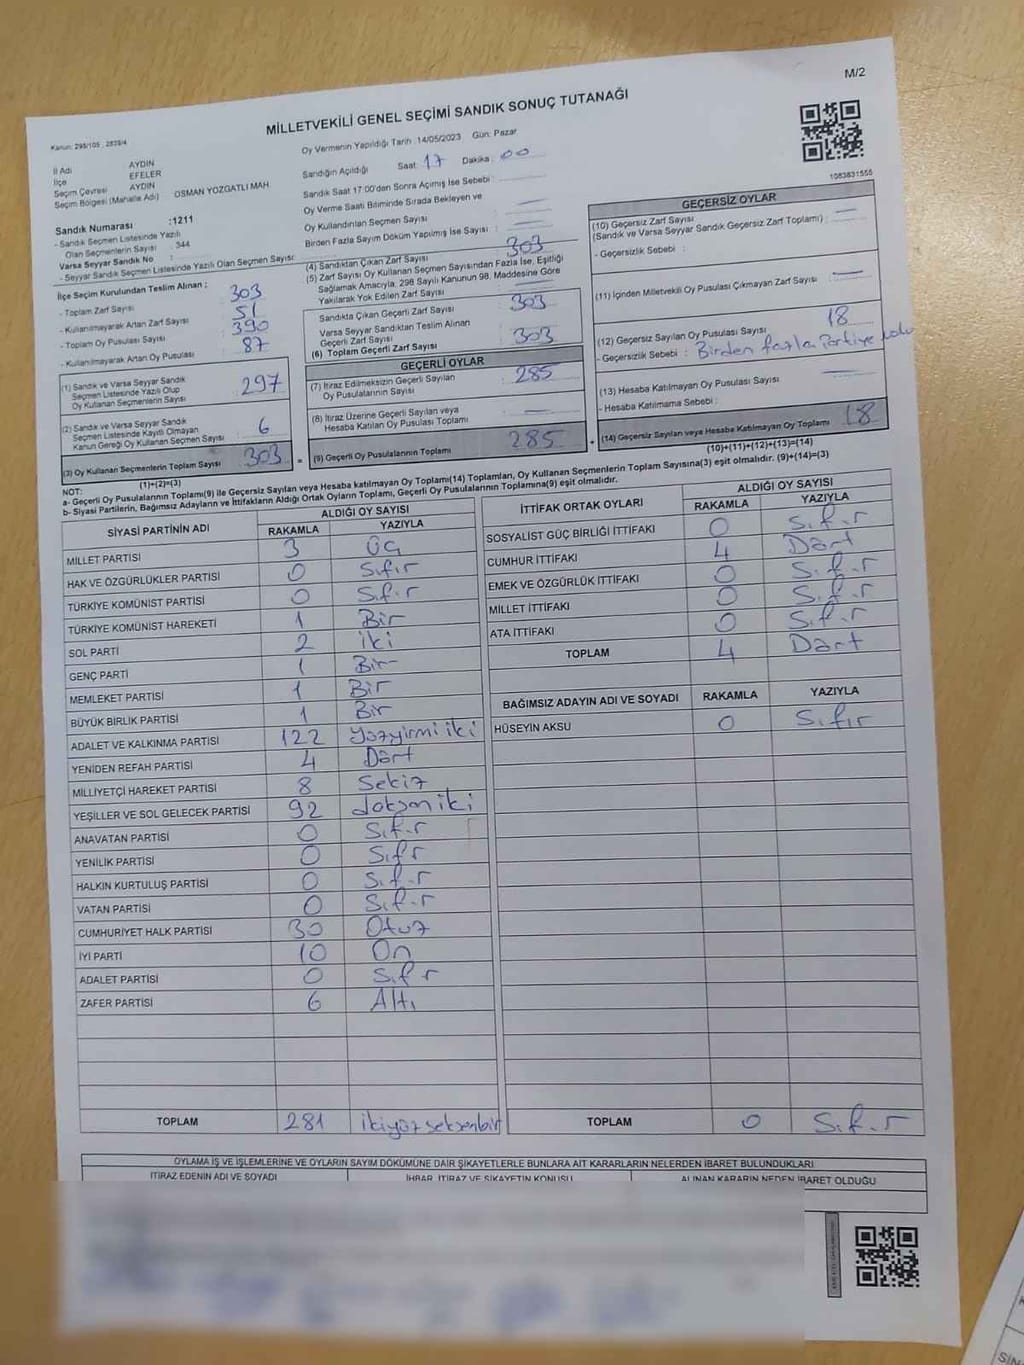 M/2
MİLLETVEKİLİ GENEL SEÇİMİ SANDIK SONUÇ TUTANAĞI
Kanun: 298/105 , 2839/4
Oy Vermenin Yapıldığı Tarih : 14/05/2023 Gün: Pazar
1083831555
İl Adı AYDIN
İlçe EFELER
Seçim Çevresi AYDIN
Seçim Bölgesi (Mahalle Adı) OSMAN YOZGATLI MAH
Sandık Numarası :1211
- Sandık Seçmen Listesinde Yazılı
Olan Seçmenlerin Sayısı : 344
Varsa Seyyar Sandık No :
- Seyyar Sandık Seçmen Listesinde Yazılı Olan Seçmen Sayısı:
İlçe Seçim Kurulundan Teslim Alınan ;
- Toplam Zarf Sayısı 303
- Kullanılmayarak Artan Zarf Sayısı 51
- Toplam Oy Pusulası Sayısı 390
- Kullanılmayarak Artan Oy Pusulası 87
(1) Sandık ve Varsa Seyyar Sandık
Seçmen Listesinde Yazılı Olup
Oy Kullanan Seçmenlerin Sayısı 297
(2) Sandık ve Varsa Seyyar Sandık
Seçmen Listesinde Kayıtlı Olmayan
Kanun Gereği Oy Kullanan Seçmen Sayısı 6
(3) Oy Kullanan Seçmenlerin Toplam Sayısı 303 =
(1)+(2)=(3)
Sandığın Açıldığı Saat: 17 Dakika : 00
Sandık Saat 17:00'den Sonra Açılmış İse Sebebi :
Oy Verme Saati Bitiminde Sırada Bekleyen ve
Oy Kullandırılan Seçmen Sayısı :
Birden Fazla Sayım Döküm Yapılmış İse Sayısı :
(4) Sandıktan Çıkan Zarf Sayısı 303
(5) Zarf Sayısı Oy Kullanan Seçmen Sayısından Fazla İse, Eşitliği
Sağlamak Amacıyla, 298 Sayılı Kanunun 98. Maddesine Göre
Yakılarak Yok Edilen Zarf Sayısı
Sandıkta Çıkan Geçerli Zarf Sayısı 303
Varsa Seyyar Sandıktan Teslim Alınan
Geçerli Zarf Sayısı
(6) Toplam Geçerli Zarf Sayısı 303
GEÇERLİ OYLAR
(7) İtiraz Edilmeksizin Geçerli Sayılan
Oy Pusulalarının Sayısı 285
(8) İtiraz Üzerine Geçerli Sayılan veya
Hesaba Katılan Oy Pusulası Toplamı
(9) Geçerli Oy Pusulalarının Toplamı 285 +
GEÇERSİZ OYLAR
(10) Geçersiz Zarf Sayısı
(Sandık ve Varsa Seyyar Sandık Geçersiz Zarf Toplamı) :
- Geçersizlik Sebebi :
(11) İçinden Milletvekili Oy Pusulası Çıkmayan Zarf Sayısı
(12) Geçersiz Sayılan Oy Pusulası Sayısı 18
- Geçersizlik Sebebi : Birden fazla Partiye
(13) Hesaba Katılmayan Oy Pusulası Sayısı
- Hesaba Katılmama Sebebi :
(14) Geçersiz Sayılan veya Hesaba Katılmayan Oy Toplamı 18
(10)+(11)+(12)+(13)=(14)
NOT:
a- Geçerli Oy Pusulalarının Toplamı(9) ile Geçersiz Sayılan veya Hesaba katılmayan Oy Toplamı(14) Toplamları, Oy Kullanan Seçmenlerin Toplam Sayısına(3) eşit olmalıdır. (9)+(14)=(3)
b- Siyasi Partilerin, Bağımsız Adayların ve İttifakların Aldığı Ortak Oyların Toplamı, Geçerli Oy Pusulalarının Toplamına(9) eşit olmalıdır.
SİYASİ PARTİNİN ADI ALDIĞI OY SAYISI
RAKAMLA YAZIYLA
MİLLET PARTİSİ 3 Üç
HAK VE ÖZGÜRLÜKLER PARTİSİ 0 Sıfır
TÜRKİYE KOMÜNİST PARTİSİ 0 Sıfır
TÜRKİYE KOMÜNİST HAREKETİ 1 Bir
SOL PARTİ 2 iki
GENÇ PARTİ 1 Bir
MEMLEKET PARTİSİ 1 Bir
BÜYÜK BİRLİK PARTİSİ 1 Bir
ADALET VE KALKINMA PARTİSİ 122 yüzyirmi iki
YENİDEN REFAH PARTİSİ 4 Dört
MİLLİYETÇİ HAREKET PARTİSİ 8 Sekiz
YEŞİLLER VE SOL GELECEK PARTİSİ 92 doksan iki
ANAVATAN PARTİSİ 0 Sıfır
YENİLİK PARTİSİ 0 Sıfır
HALKIN KURTULUŞ PARTİSİ 0 Sıfır
VATAN PARTİSİ 0 Sıfır
CUMHURİYET HALK PARTİSİ 30 Otuz
İYİ PARTİ 10 On
ADALET PARTİSİ 0 Sıfır
ZAFER PARTİSİ 6 Altı
TOPLAM 281 ikiyüz seksenbir
İTTİFAK ORTAK OYLARI ALDIĞI OY SAYISI
RAKAMLA YAZIYLA
SOSYALİST GÜÇ BİRLİĞİ İTTİFAKI 0 Sıfır
CUMHUR İTTİFAKI 4 Dört
EMEK VE ÖZGÜRLÜK İTTİFAKI 0 Sıfır
MİLLET İTTİFAKI 0 Sıfır
ATA İTTİFAKI 0 Sıfır
TOPLAM 4 Dört
BAĞIMSIZ ADAYIN ADI VE SOYADI RAKAMLA YAZIYLA
HÜSEYİN AKSU 0 Sıfır
TOPLAM 0 Sıfır
OYLAMA İŞ VE İŞLEMLERİNE VE OYLARIN SAYIM DÖKÜMÜNE DAİR ŞİKAYETLERLE BUNLARA AİT KARARLARIN NELERDEN İBARET BULUNDUKLARI
İTİRAZ EDENİN ADI VE SOYADI İHBAR, İTİRAZ VE ŞİKAYETİN KONUSU ALINAN KARARIN NEDEN İBARET OLDUĞU